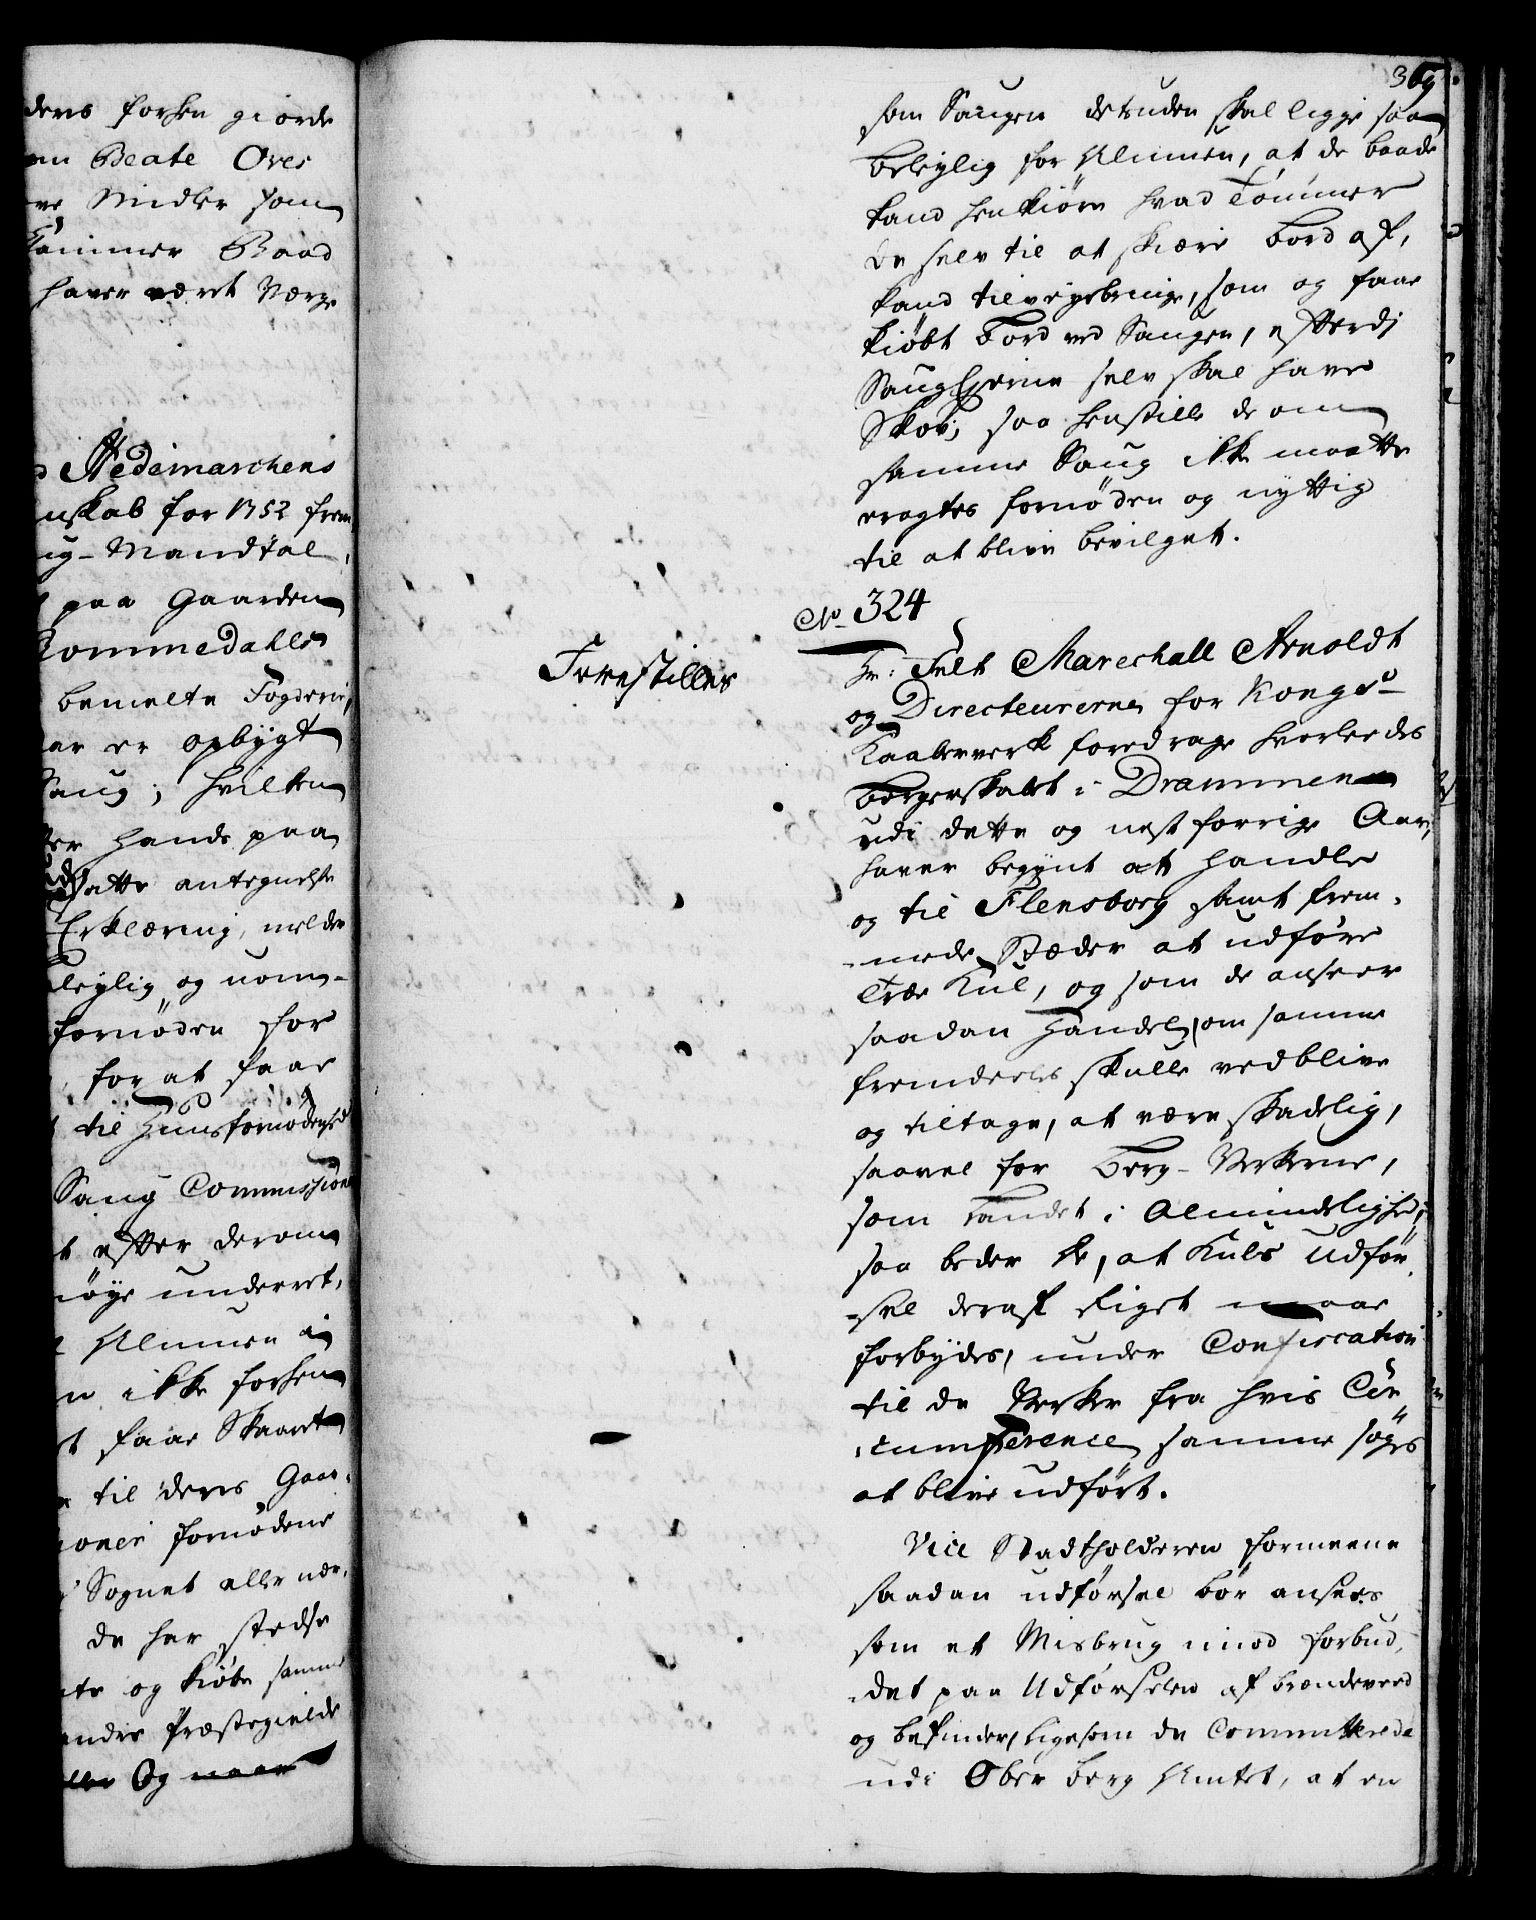 ders forhen giorde
en Beate Over
re Midler som
Tømmer Baad
haver været Værge
Hedemarchens
nskab for 1752 frem
ug-Mandtal,
paa Gaarden
Kommedahls
bemelte Fogderie,
ar er opbygt
Saug; hvilken
er hands paa
udsatte antegnelse
Erklæring, melder
leylig og uom-
fornøden for
for at faae
til Huusfornødenhed
Saug Commission
t efter derom
nøye underret,
Almuen i
n ikke forhen
t faae Skaaret
til deres Gaar-
fornødene
Sognet eller nær,
de har stedse
te og kiøbe samme
andre Præstegields
Og naar
369.
som Saugen desuden skal ligge saa
beleylig for Almuen, at de baade
kand henkiøre hvad Tømmer
de selv til at skiære bord af,
kand tilveyebringe, som og faae
kiøbt bord ved Saugen, efterdj
Saug Ejerne selv skal have
Skov; saa henstille de om
samme Saug ikke maatte
eragtes fornøden og nyttig
til at blive bevilget.
No. 324
Forestilles
Hr: Felt Mareschall Arnoldt
og Directeurerne for Kongs-
Kaaberverk foredrage hvorledes
borgerskabet i Drammen
udi dette og nest forrige Aar,
haver begynt at handle
og til Flensborg samt frem-
mede Stæder at udføre
Træe Kul, og som de anseer
saadan Handel, om samme
fremdeeles skulle vedblive
og tiltage, at være skadelig,
saavel for Berg-Verkerne,
som Landet i Almindelighed,
saa beder de, at Kuls udfør-
-sel deraf Riget maae
forbydes, under Confiscation
til de Verker fra hvis Cir
-cumference samme søges
at blive udført.
Vice Stadtholderen formeene
saadan udførsel bør ansees
som et Misbrug imod forbud-
-det paa Udførselen af brændeveed
og befinder, ligesom de Committerede
udi Ober Berg Amtet, at en